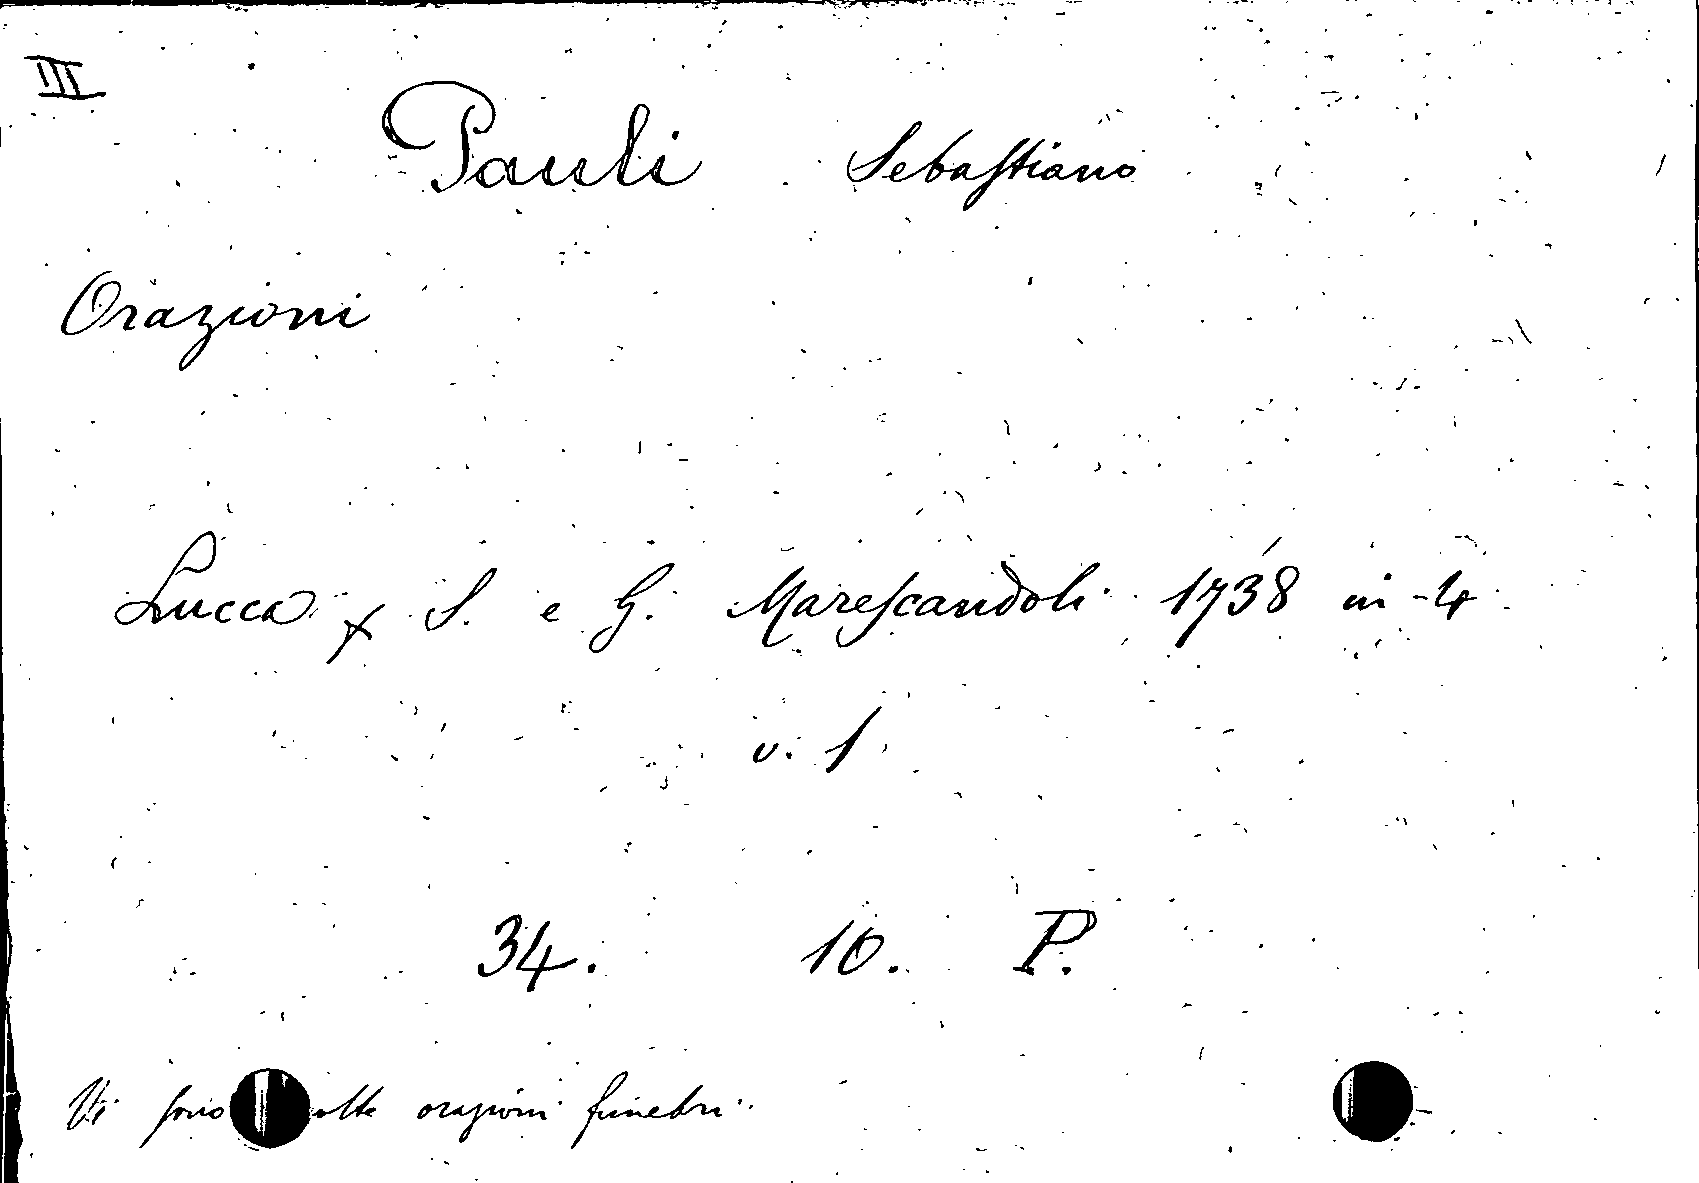 III
Pauli Sebastiano
Orazioni
Lucca x S. e G. Marescandoli 1738 in-4
v. 1
34. 10. P.
Vi sono orazioni funebri